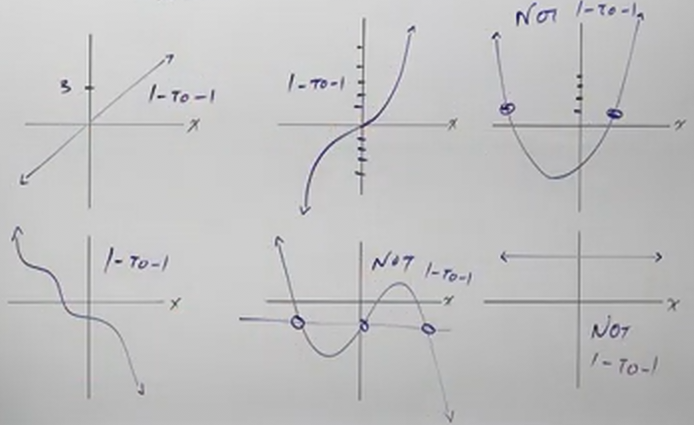 NOT 1-TO-1
3
1-TO-1
X
1-TO-1
X
X
1-TO-1
X
NOT 1-TO-1
X
X
NOT
1-TO-1